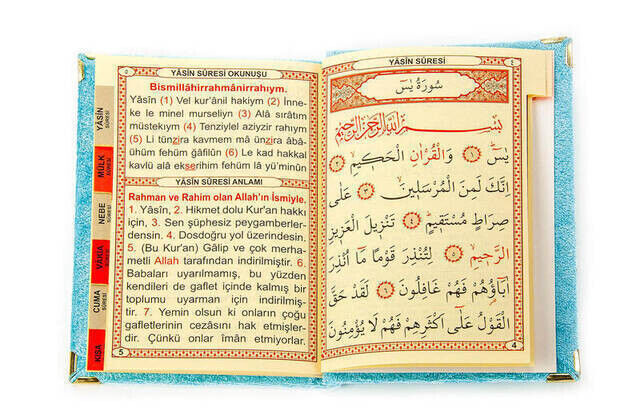 YÂSÎN SÛRESİ
٤
سُورَةُ يٰسٓ
بِسْمِ اللّٰهِ الرَّحْمٰنِ الرَّحِيمِ
يٰسٓ ﴿١﴾ وَالْقُرْاٰنِ الْحَكِيمِ ﴿٢﴾
اِنَّكَ لَمِنَ الْمُرْسَلِينَ ﴿٣﴾ عَلٰى
صِرَاطٍ مُسْتَقِيمٍ ﴿٤﴾ تَنْزِيلَ الْعَزِيزِ
الرَّحِيمِ ﴿٥﴾ لِتُنْذِرَ قَوْمًا مَٓا اُنْذِرَ
اٰبَٓاؤُهُمْ فَهُمْ غَافِلُونَ ﴿٦﴾ لَقَدْ حَقَّ
الْقَوْلُ عَلٰٓى اَكْثَرِهِمْ فَهُمْ لَا يُؤْمِنُونَ
4
٥
YÂSÎN SÛRESİ OKUNUŞU
Bismillâhirrahmânirrahıym.
Yâsîn (1) Vel kur'ânil hakiym (2) İnne-
ke le minel murseliyn (3) Alâ sırâtım
müstekıym (4) Tenziylel aziyzir rahıym
(5) Li tünzira kavmem mâ ünzira âbâ-
ühum fehüm ğâfilûn (6) Le kad hakkal
kavlü alâ ekserihim fehüm lâ yü'minûn
YÂSÎN SÛRESİ ANLAMI
Rahman ve Rahim olan Allah'ın İsmiyle.
1. Yâsîn, 2. Hikmet dolu Kur'an hakkı
için, 3. Sen şüphesiz peygamberler-
densin. 4. Dosdoğru yol üzerindesin.
5. (Bu Kur'an) Gâlip ve çok merha-
metli Allah tarafından indirilmiştir. 6.
Babaları uyarılmamış, bu yüzden
kendileri de gaflet içinde kalmış bir
toplumu uyarman için indirilmiş-
tir. 7. Yemin olsun ki onların çoğu
gafletlerinin cezâsını hak etmişler-
dir. Çünkü onlar îman etmiyorlar.
5
YÂSİN
SÛRESİ
MÜLK
SÛRESİ
NEBE
SÛRESİ
VÂKIA
SÛRESİ
CUMA
SÛRESİ
KISA